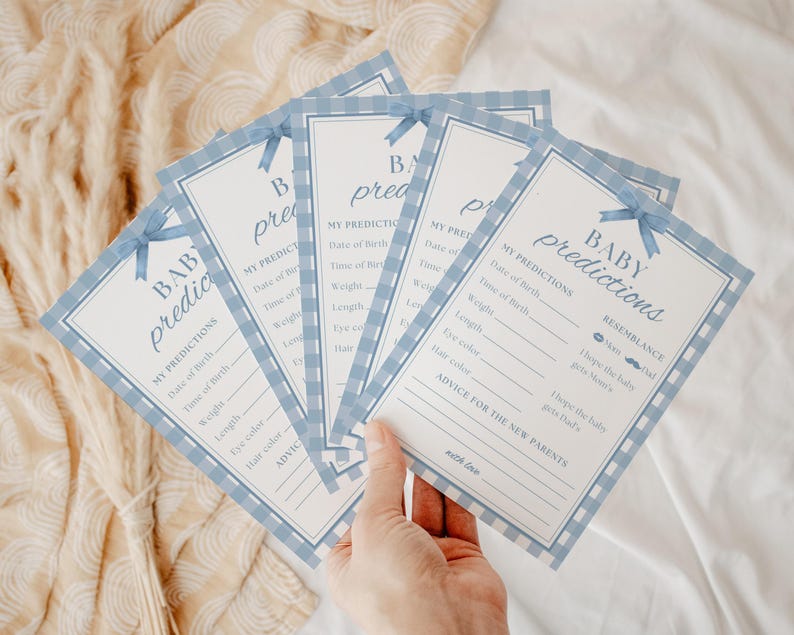 BAB
predic
MY PREDICTIONS
Date of Birth
Time of Birth
Weight
Length
Eye color
Hair color
ADVICE
BA
pred
MY PREDI
Date of
Time of
Weight
Length
Eye color
Hair co
BA
predic
MY PREDICTIONS
Date of Birth
Time of Birth
Weight
Length
Eye color
Hair co
pre
MY PREDI
Date of B
Time of
Weight
Length
Eye co
Hair
BABY
predictions
MY PREDICTIONS
Date of Birth
Time of Birth
Weight
Length
Eye color
Hair color
RESEMBLANCE
Mom Dad
I hope the baby
gets Mom's
I hope the baby
gets Dad's
ADVICE FOR THE NEW PARENTS
with love